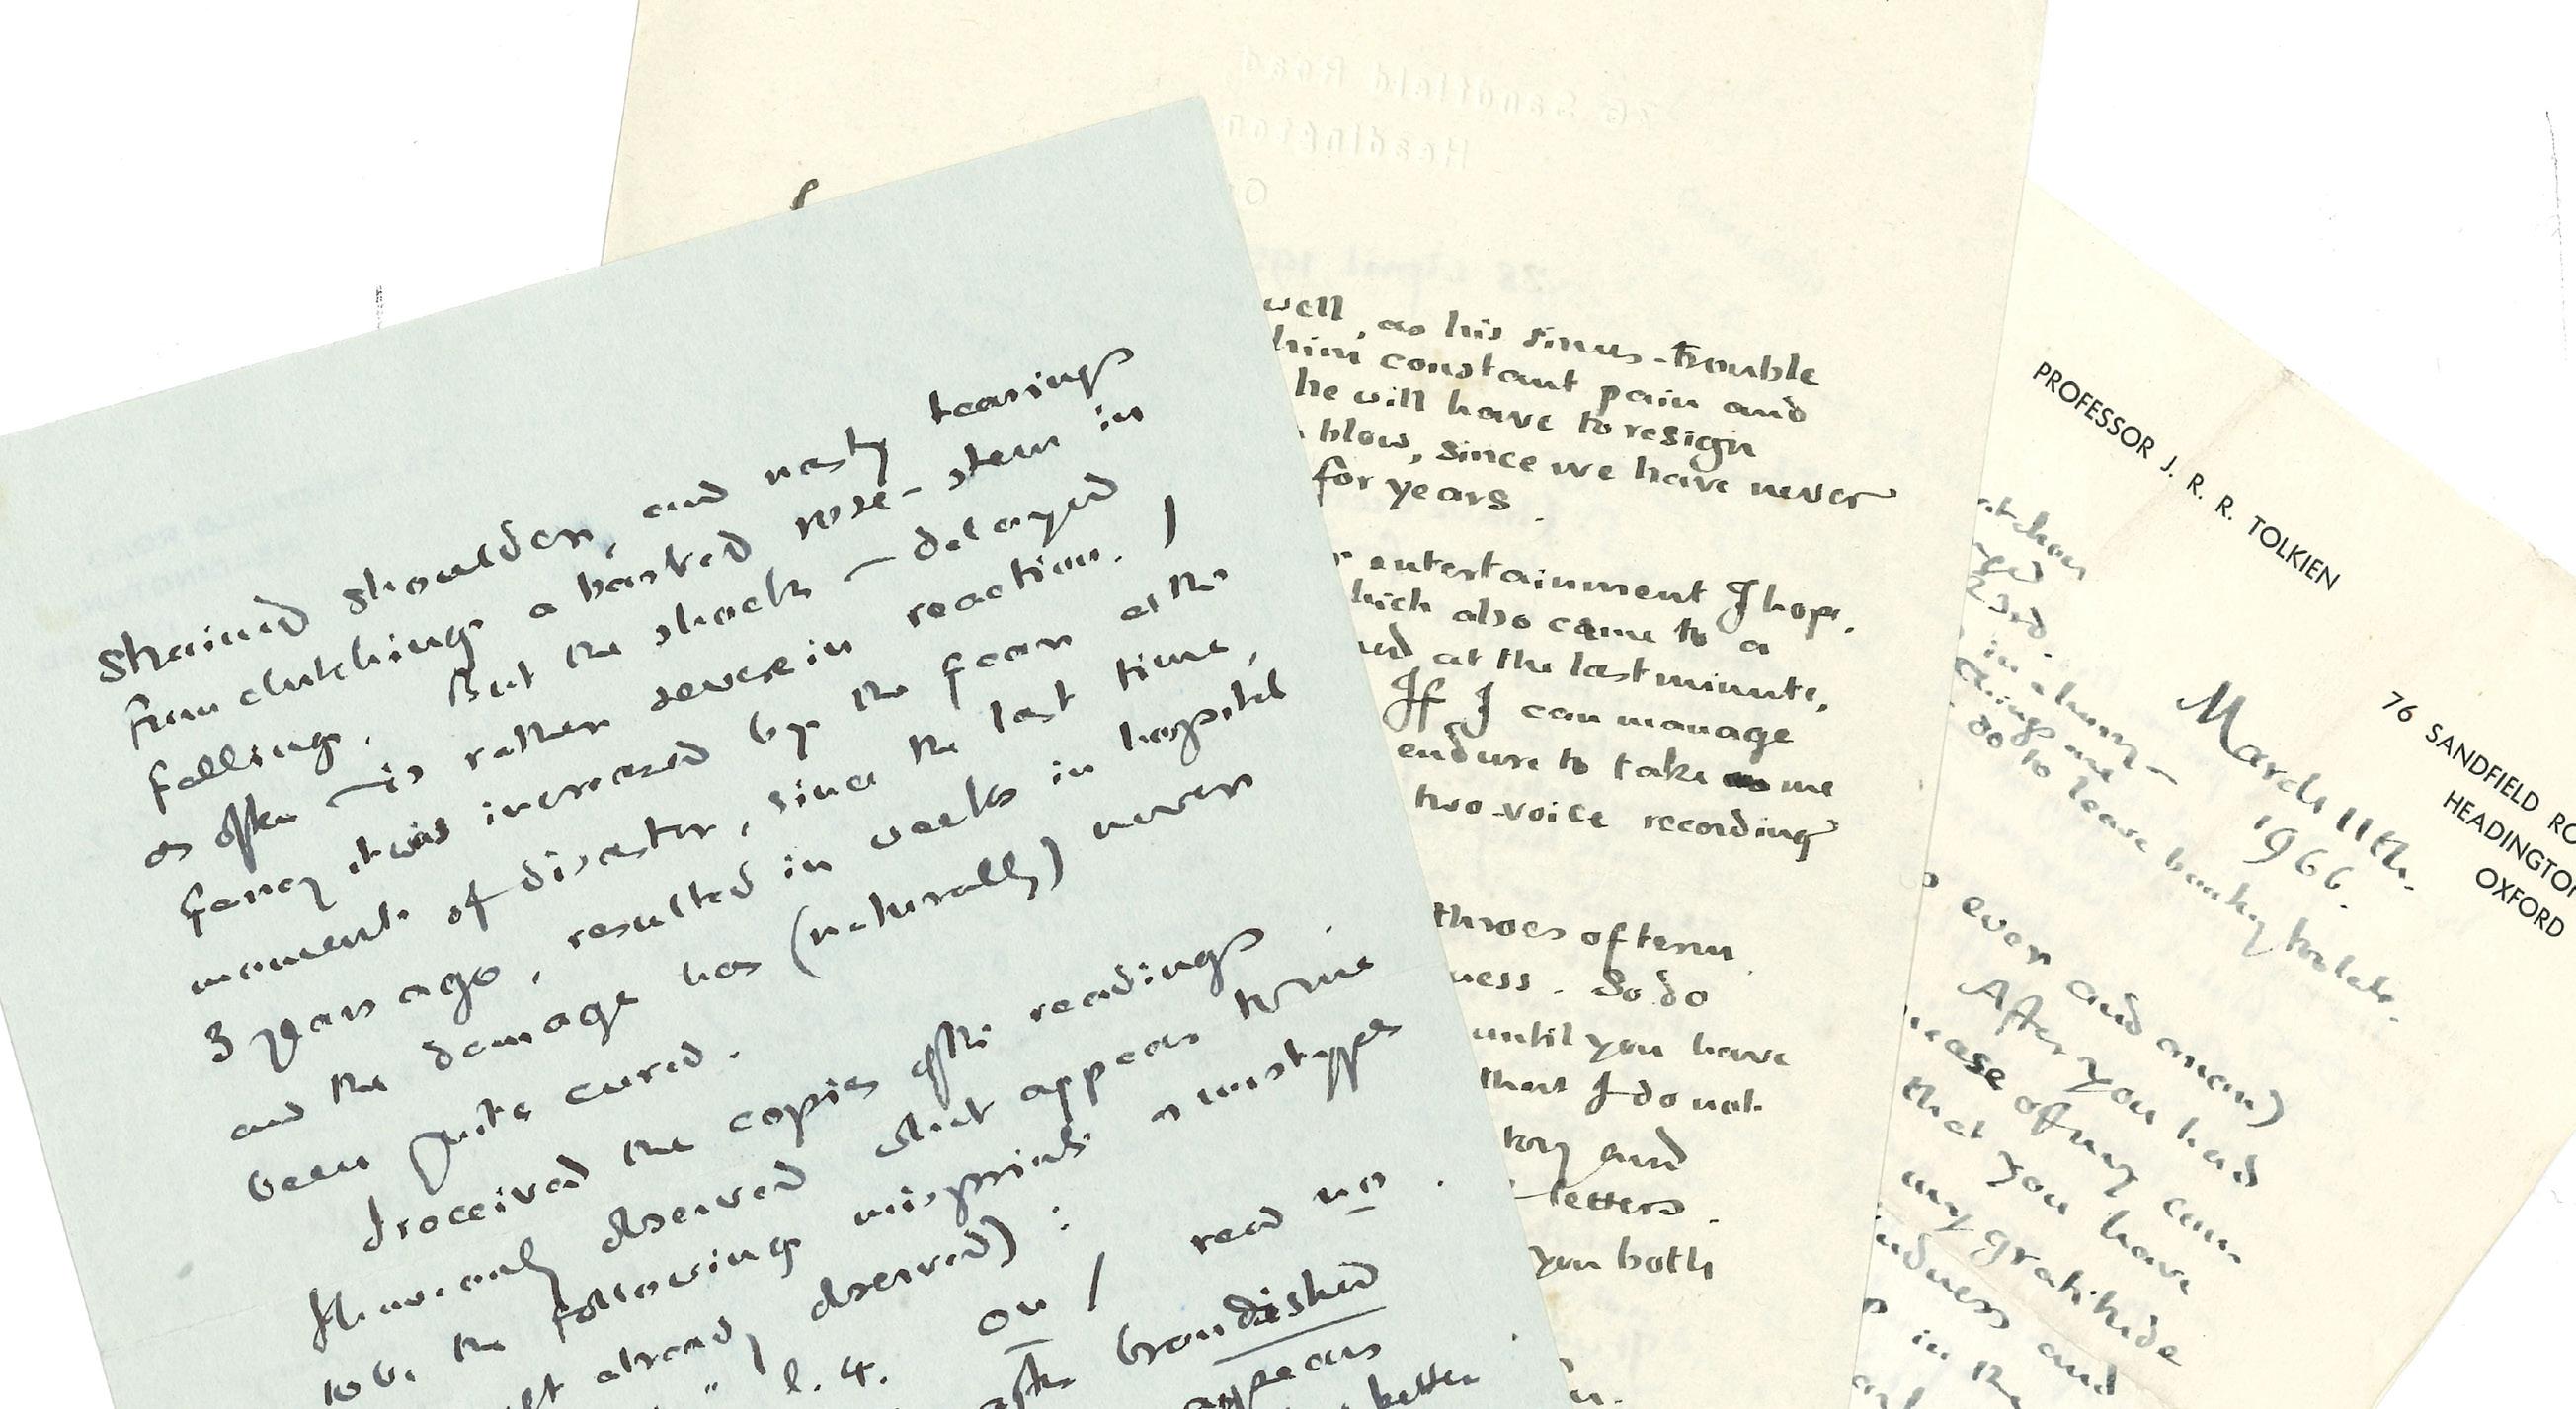 strained shoulder, and nasty tearings
from clutching a barbed rose-stem in
falling. But the shock — delayed
as often — is rather severe in reaction. I
fancy it was increased by the fear at the
moment of disaster, since the last time,
3 years ago, resulted in weeks in hospital
and the damage has (naturally) never
been quite cured.
I received the copies of the readings.
I have only observed what appear to me
to be the following misprints or mistypes
already observed) :
" l. 4. on / read no.
brandished
appears
better
76 Sandfield Road
Headington
well, as his sinus-trouble
him constant pain and
he will have to resign
blow, since we have never
for years.
entertainment I hope.
which also came to a
at the last minute,
If I can manage
endure to take me
two-voice recording
throes of term
ness. So do
until you have
that I do not
tory and
letters.
you both
PROFESSOR J. R. R. TOLKIEN
76 SANDFIELD RO
HEADINGTON
OXFORD
March 11th.
1966.
23rd.
in
things are
to leave
hotels.
ever and anon)
After you had
of my
that you have
my gratitude
and
in the